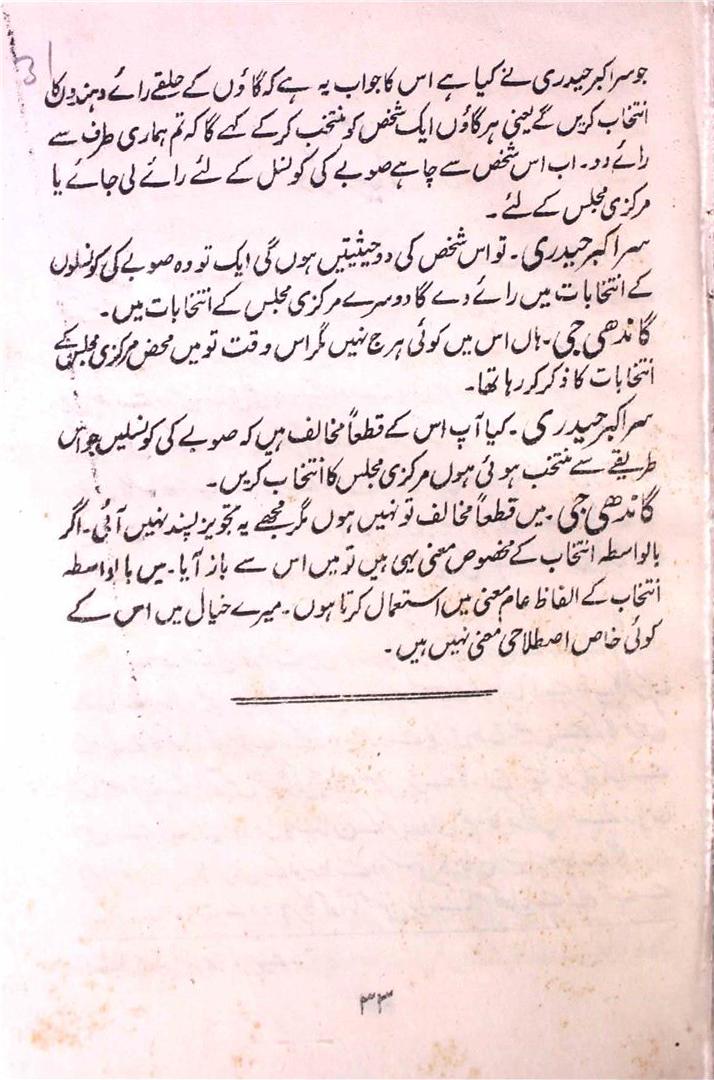 جو سر اکبر حیدری نے کیا ہے اس کا جواب یہ ہے کہ گاؤں کے حلقے رائے دہندوں کا
انتخاب کریں گے یعنی ہر گاؤں ایک شخص کو منتخب کرکے کہے گا کہ تم ہماری طرف سے
رائے دو۔ اب اس شخص سے چاہے صوبے کی کونسل کے لئے رائے لی جائے یا
مرکزی مجلس کے لئے۔
سر اکبر حیدری۔ تو اس شخص کی دو حیثیتیں ہوں گی ایک تو وہ صوبے کی کونسلوں
کے انتخابات میں رائے دے گا دوسرے مرکزی مجلس کے انتخابات میں۔
گاندھی جی۔ ہاں اس میں کوئی ہرج نہیں مگر اس وقت تو میں محض مرکزی مجلس کے
انتخابات کا ذکر کر رہا تھا۔
سر اکبر حیدری۔ کیا آپ اس کے قطعاً مخالف ہیں کہ صوبے کی کونسلیں جو اس
طریقے سے منتخب ہوئی ہوں مرکزی مجلس کا انتخاب کریں۔
گاندھی جی۔ میں قطعاً مخالف تو نہیں ہوں مگر مجھے یہ تجویز پسند نہیں آئی۔ اگر
بالواسطہ انتخاب کے مخصوص معنی یہی ہیں تو میں اس سے باز آیا۔ میں بالواسطہ
انتخاب کے الفاظ عام معنی میں استعمال کرتا ہوں۔ میرے خیال میں اس کے
کوئی خاص اصطلاحی معنی نہیں ہیں۔
۳۳